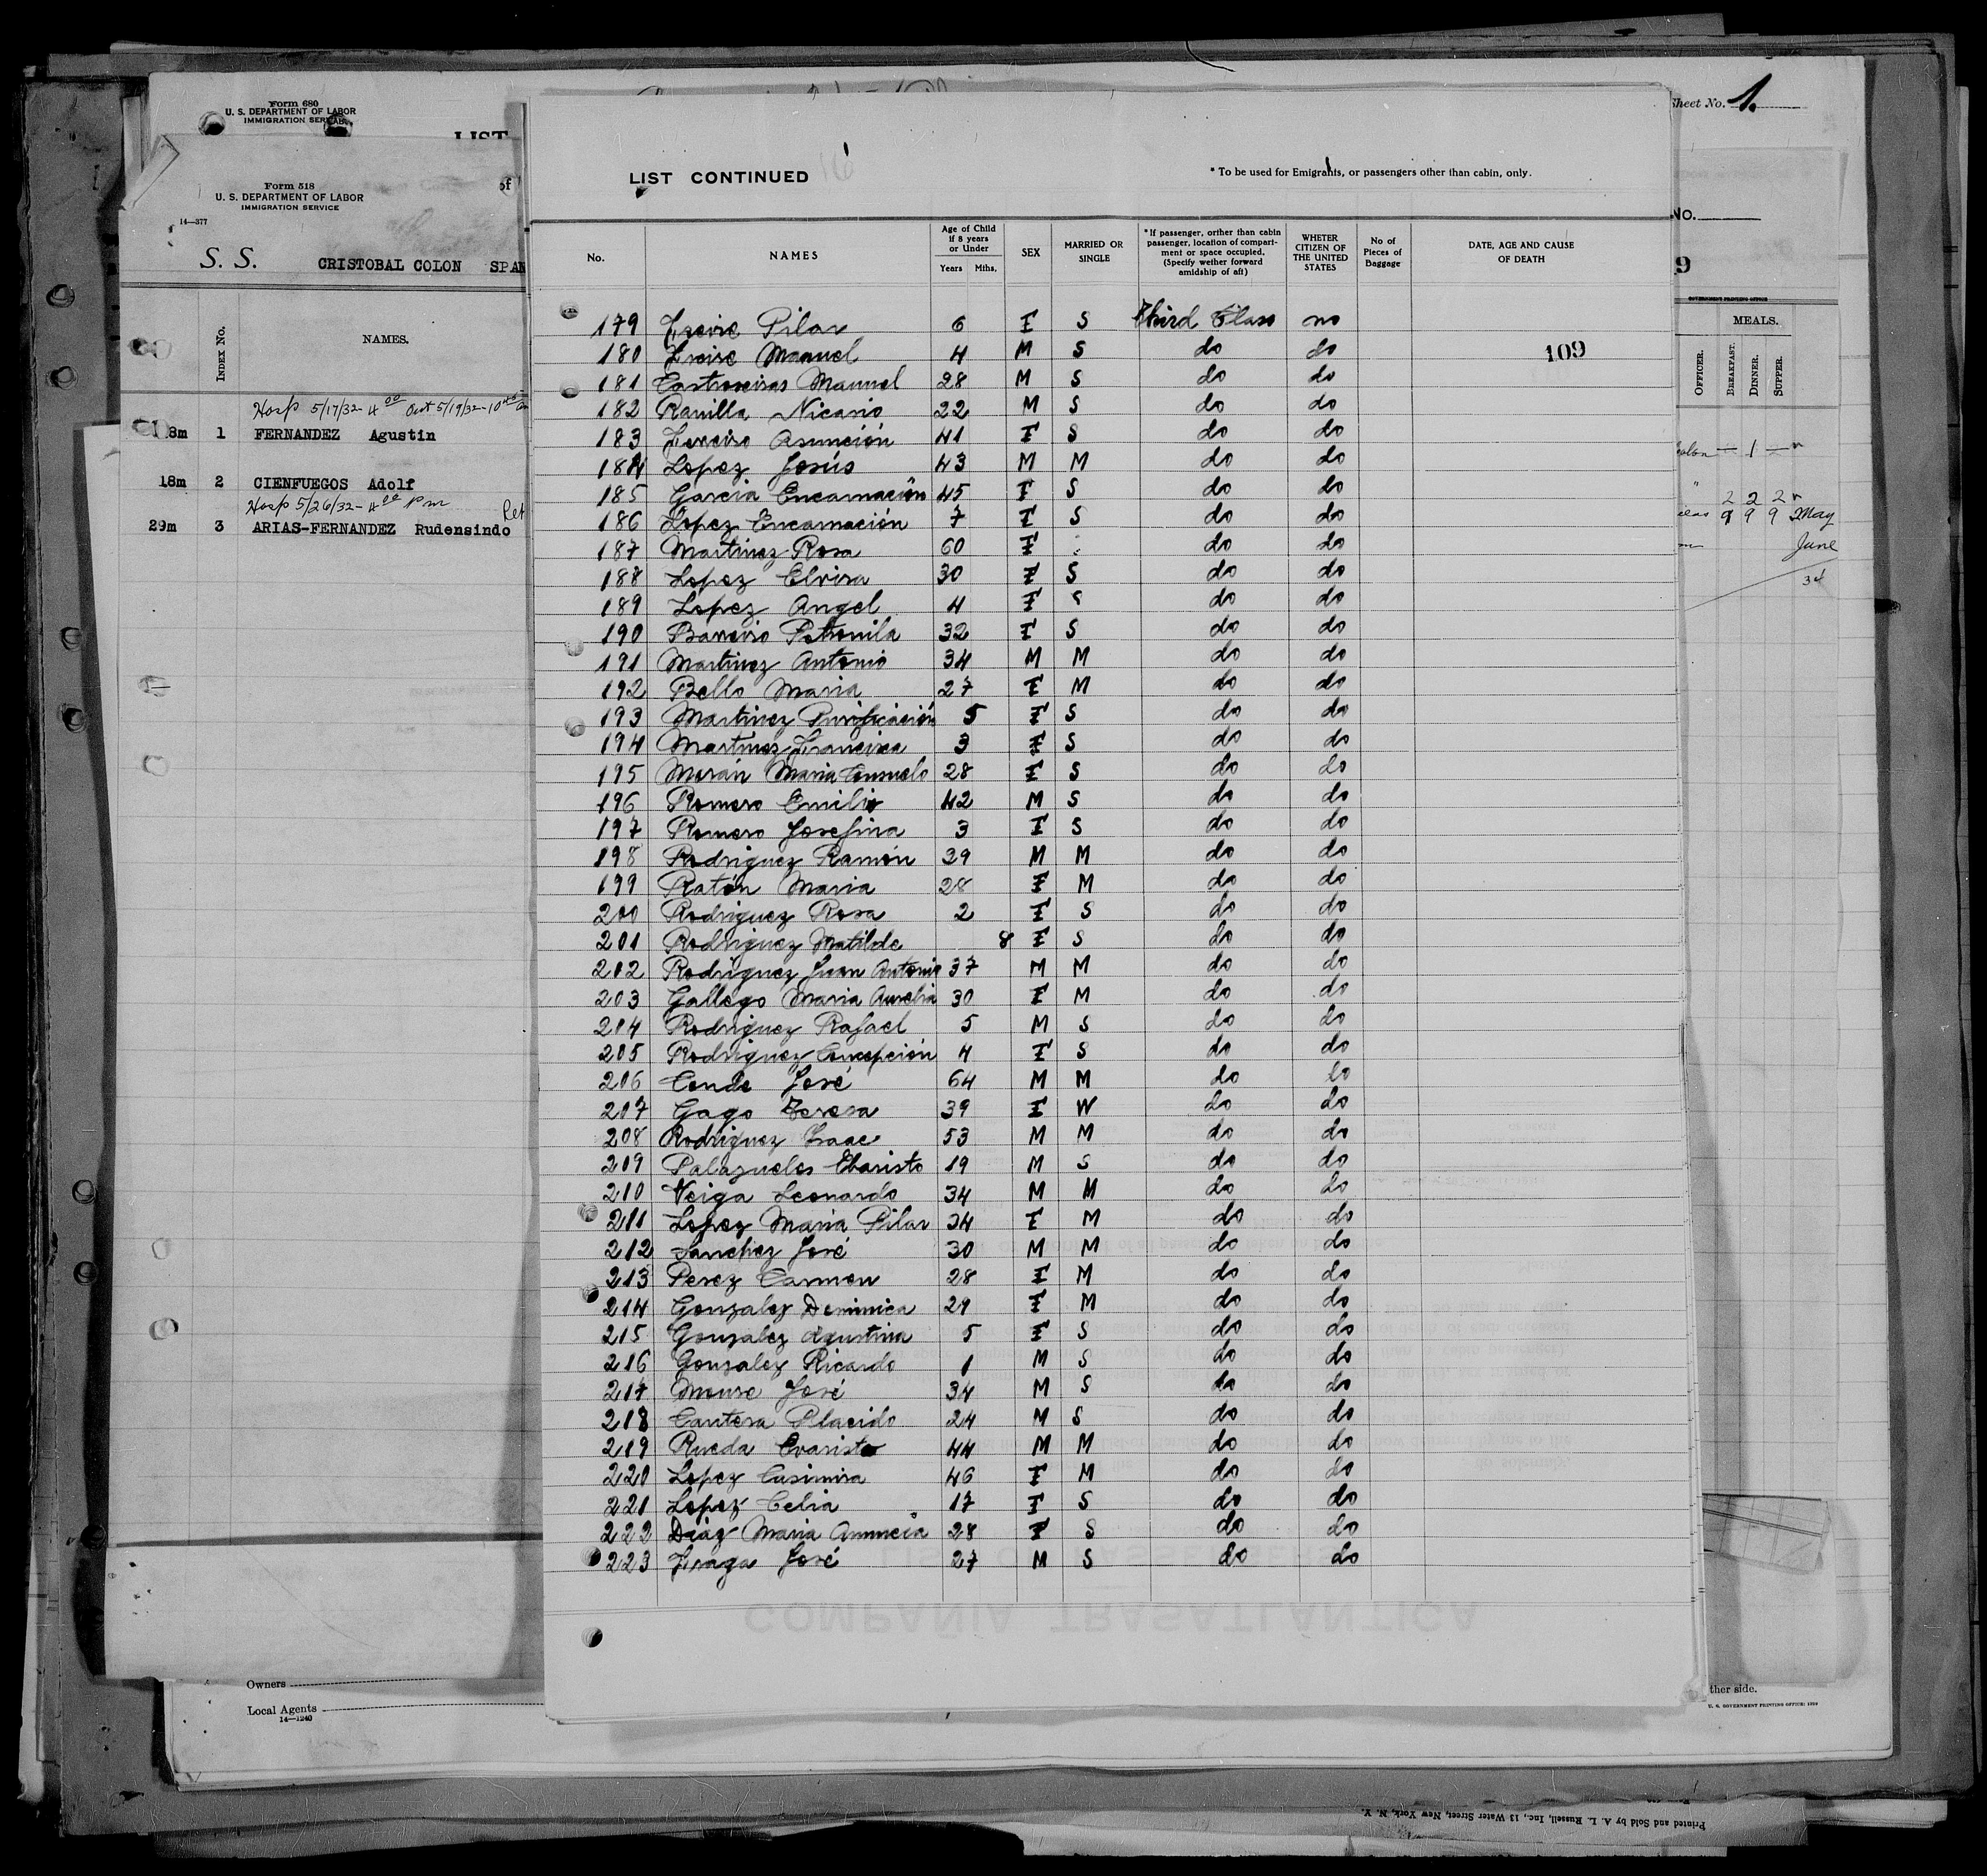 Form 680
U. S. DEPARTMENT OF LABOR
IMMIGRATION SERVICE
LIST
Sheet No. 1.
Form 518
U. S. DEPARTMENT OF LABOR
IMMIGRATION SERVICE
of
14—377
No.
S. S. CRISTOBAL COLON SPAN
9
GOVERNMENT PRINTING OFFICE
INDEX No.
NAMES.
MEALS.
OFFICER.
BREAKFAST.
DINNER.
SUPPER.
Hosp 5/17/32- 4 00 Out 5/19/32-10 45 am
18m 1 FERNANDEZ Agustin
18m 2 CIENFUEGOS Adolf
Hosp 5/26/32- 4 00 Pm
29m 3 ARIAS-FERNANDEZ Rudensindo
1
2 2 2
9 9 9 May
June
34
LIST CONTINUED
* To be used for Emigrants, or passengers other than cabin, only.
No.
NAMES
Age of Child if 8 years or Under
Years Mths.
SEX
MARRIED OR SINGLE
*If passenger, orther than cabin passenger, location of compartment or space occupied. (Specify wether forward amidship of aft)
WHETER CITIZEN OF THE UNITED STATES
No of Pieces of Baggage
DATE, AGE AND CAUSE OF DEATH
109
179 Freire Pilar 6 F S Third Class no
180 Freire Manuel 4 M S do do
181 Castroseiras Manuel 28 M S do do
182 Ranilla Nicasio 22 M S do do
183 Ferreiro Asunción 41 F S do do
184 Lopez Jesús 43 M M do do
185 Garcia Encarnación 45 F S do do
186 Lopez Encarnación 7 F S do do
187 Martinez Rosa 60 F do do
188 Lopez Elvira 30 F S do do
189 Lopez Angel 4 F S do do
190 Barreiro Petronila 32 F S do do
191 Martinez Antonio 34 M M do do
192 Bello Maria 27 F M do do
193 Martinez Purificación 5 F S do do
194 Martinez Francisca 3 F S do do
195 Morán Maria Consuelo 28 F S do do
196 Romero Emilio 42 M S do do
197 Romero Josefina 3 F S do do
198 Rodriguez Ramón 39 M M do do
199 Ratón Maria 28 F M do do
200 Rodriguez Rosa 2 F S do do
201 Rodriguez Matilde 8 F S do do
202 Rodriguez Juan Antonio 37 M M do do
203 Gallego Maria Aurelia 30 F M do do
204 Rodriguez Rafael 5 M S do do
205 Rodriguez Concepción 4 F S do do
206 Conde José 64 M M do do
207 Gago Teresa 39 F W do do
208 Rodriguez Isaac 53 M M do do
209 Palazuelos Ebaristo 19 M S do do
210 Veiga Leonardo 34 M M do do
211 Lopez Maria Pilar 34 F M do do
212 Sanchez José 30 M M do do
213 Perez Carmen 28 F M do do
214 Gonzalez Dominica 29 F M do do
215 Gonzalez Agustina 5 F S do do
216 Gonzalez Ricardo 1 M S do do
217 Moure José 34 M S do do
218 Cantera Placido 24 M S do do
219 Rueda Evaristo 44 M M do do
220 Lopez Casimira 46 F M do do
221 Lopez Celia 17 F S do do
222 Diaz Maria Anuncia 28 F S do do
223 Fraga José 27 M S do do
COMPAÑIA TRASATLANTICA
Owners
Local Agents
14—1240
ther side.
U. S. GOVERNMENT PRINTING OFFICE: 1929
Printed and Sold by A. L. Russell, Inc., 13 Water Street, New York, N. Y.